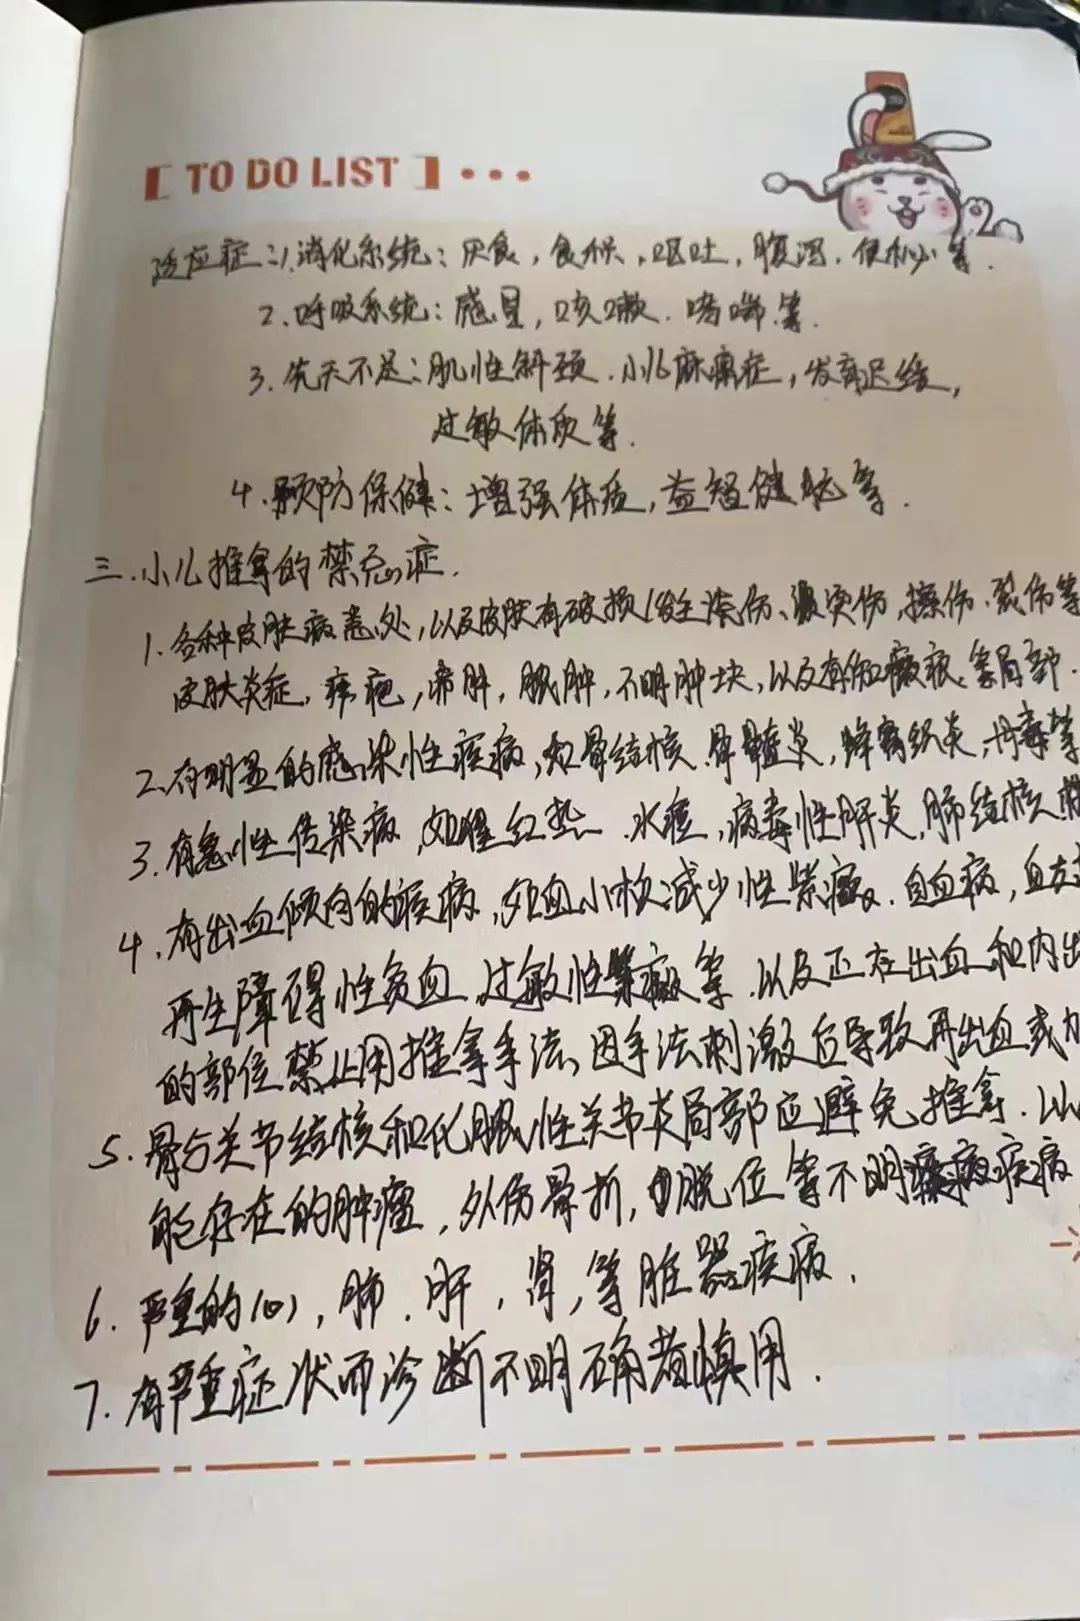 [ TO DO LIST ] • • •
适应症：1.消化系统：厌食，食积，呕吐，腹泻.便秘等.
2.呼吸系统：感冒，咳嗽.哮喘等.
3.先天不足：肌性斜颈.小儿麻痹症，发育迟缓，
过敏体质等.
4.预防保健：增强体质，益智健脑等.
三.小儿推拿的禁忌症.
1.各种皮肤病患处，以及皮肤有破损(发生烫伤、溃疡伤，擦伤.裂伤等
皮肤炎症，疖疮，肿，脓肿，不明肿块，以及有伤口瘢痕等局部.
2.有明显的感染性疾病，如骨结核.骨髓炎，蜂窝织炎，丹毒等
3.有急性传染病，如猩红热.水痘，病毒性肝炎，肺结核
4.有出血倾向的疾病，如血小板减少性紫癜.白血病，血友
再生障碍性贫血，过敏性紫癜等.以及正在出血和内出
的部位禁止用推拿手法，因手法刺激后导致再出血或加
5.骨与关节结核和化脓性关节炎局部应避免推拿.以
能存在的肿瘤，外伤骨折，脱位等不明疾病
6.严重的心，肺.肝，肾，等脏器疾病.
7.有严重症状而诊断不明确者慎用.